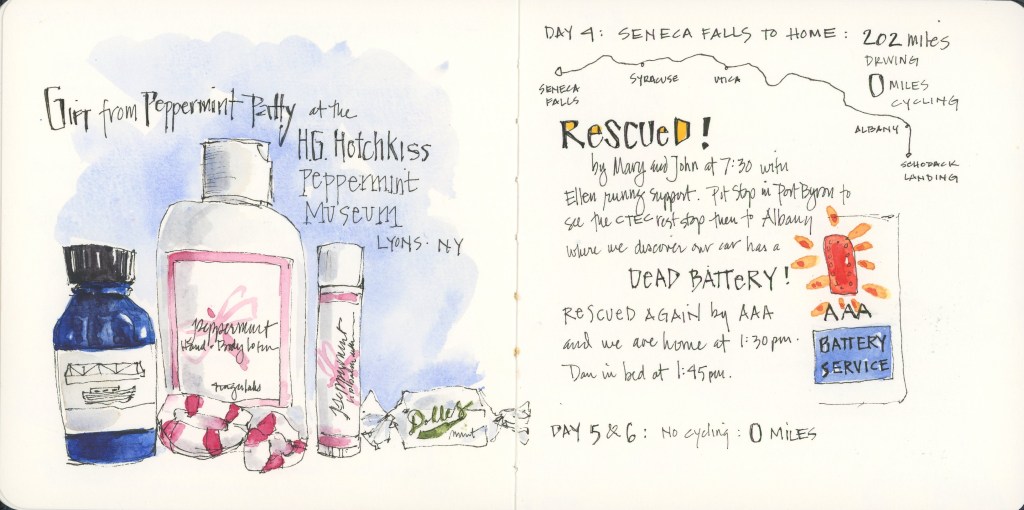 Gift from Peppermint Patty at the
H.G. Hotchkiss
Peppermint
Museum
Lyons · NY
Peppermint
Hand + Body Lotion
Peppermint
Dolles
mint
DAY 4: SENECA FALLS TO HOME: 202 miles
DRIVING
0 MILES
CYCLING
SENECA
FALLS
SYRACUSE
UTICA
ALBANY
SCHODACK
LANDING
RESCUED!
by Mary and John at 7:30 with
Ellen running support. Pit Stop in Port Byron to
see the CTEC rest stop then to Albany
where we discover our car has a
DEAD BATTERY!
RESCUED AGAIN by AAA
and we are home at 1:30pm.
Dan in bed at 1:45pm.
AAA
BATTERY
SERVICE
DAY 5 & 6: No cycling: 0 MILES